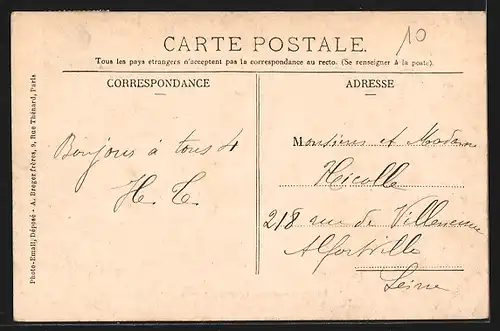 10
CARTE POSTALE.
Tous les pays etrangers n'acceptent pas la correspondance au recto. (Se renseigner à la poste).
CORRESPONDANCE
ADRESSE
Bonjour à tous 4
H. T.
Monsieur et Madame
Nicolle
218 rue de Villeneuve
Alfortville
Seine
Photo-Email, Déposé - A. Breger frères, 9, Rue Thénard, Paris